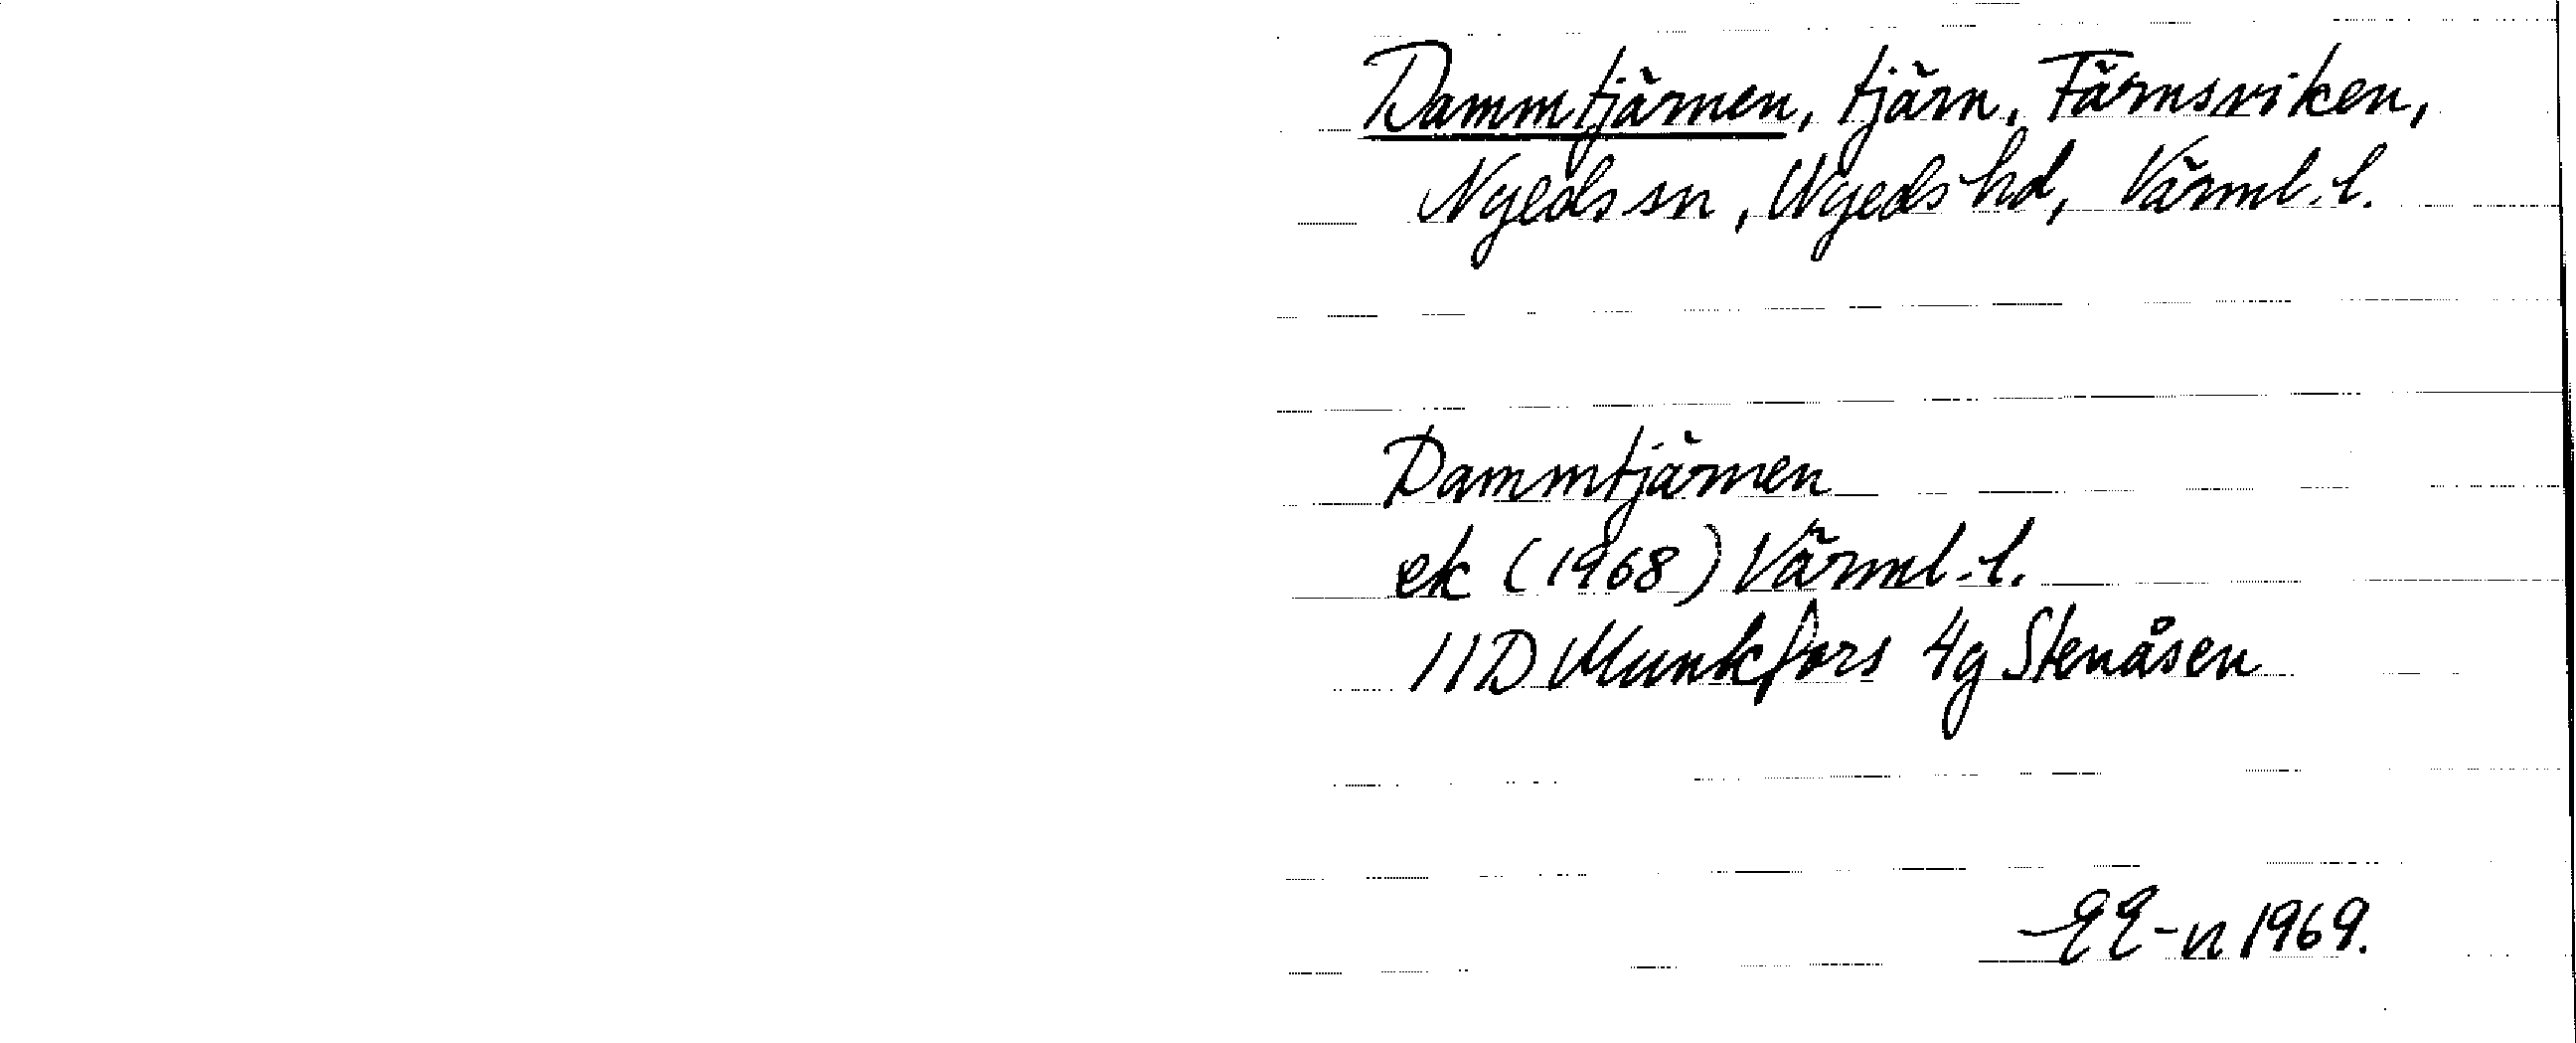 Dammtjärnen, tjärn, Färnsviken,
Nyeds sn, Nyeds hd, Värml. l.
Dammtjärnen
ek (1968) Värml. l.
11D Munkfors 4g Stenåsen
EE-n 1969.